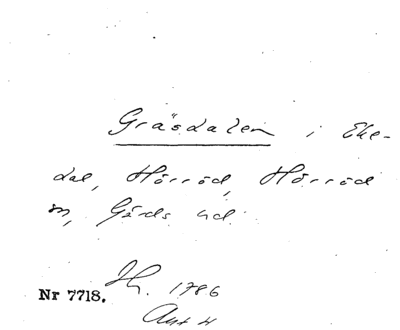 Gräsdalen i Eke-
dal, Hörröd, Hörröd
sn, Gärds hd.
Jh. 1786
Nr 7718.
Akt 4